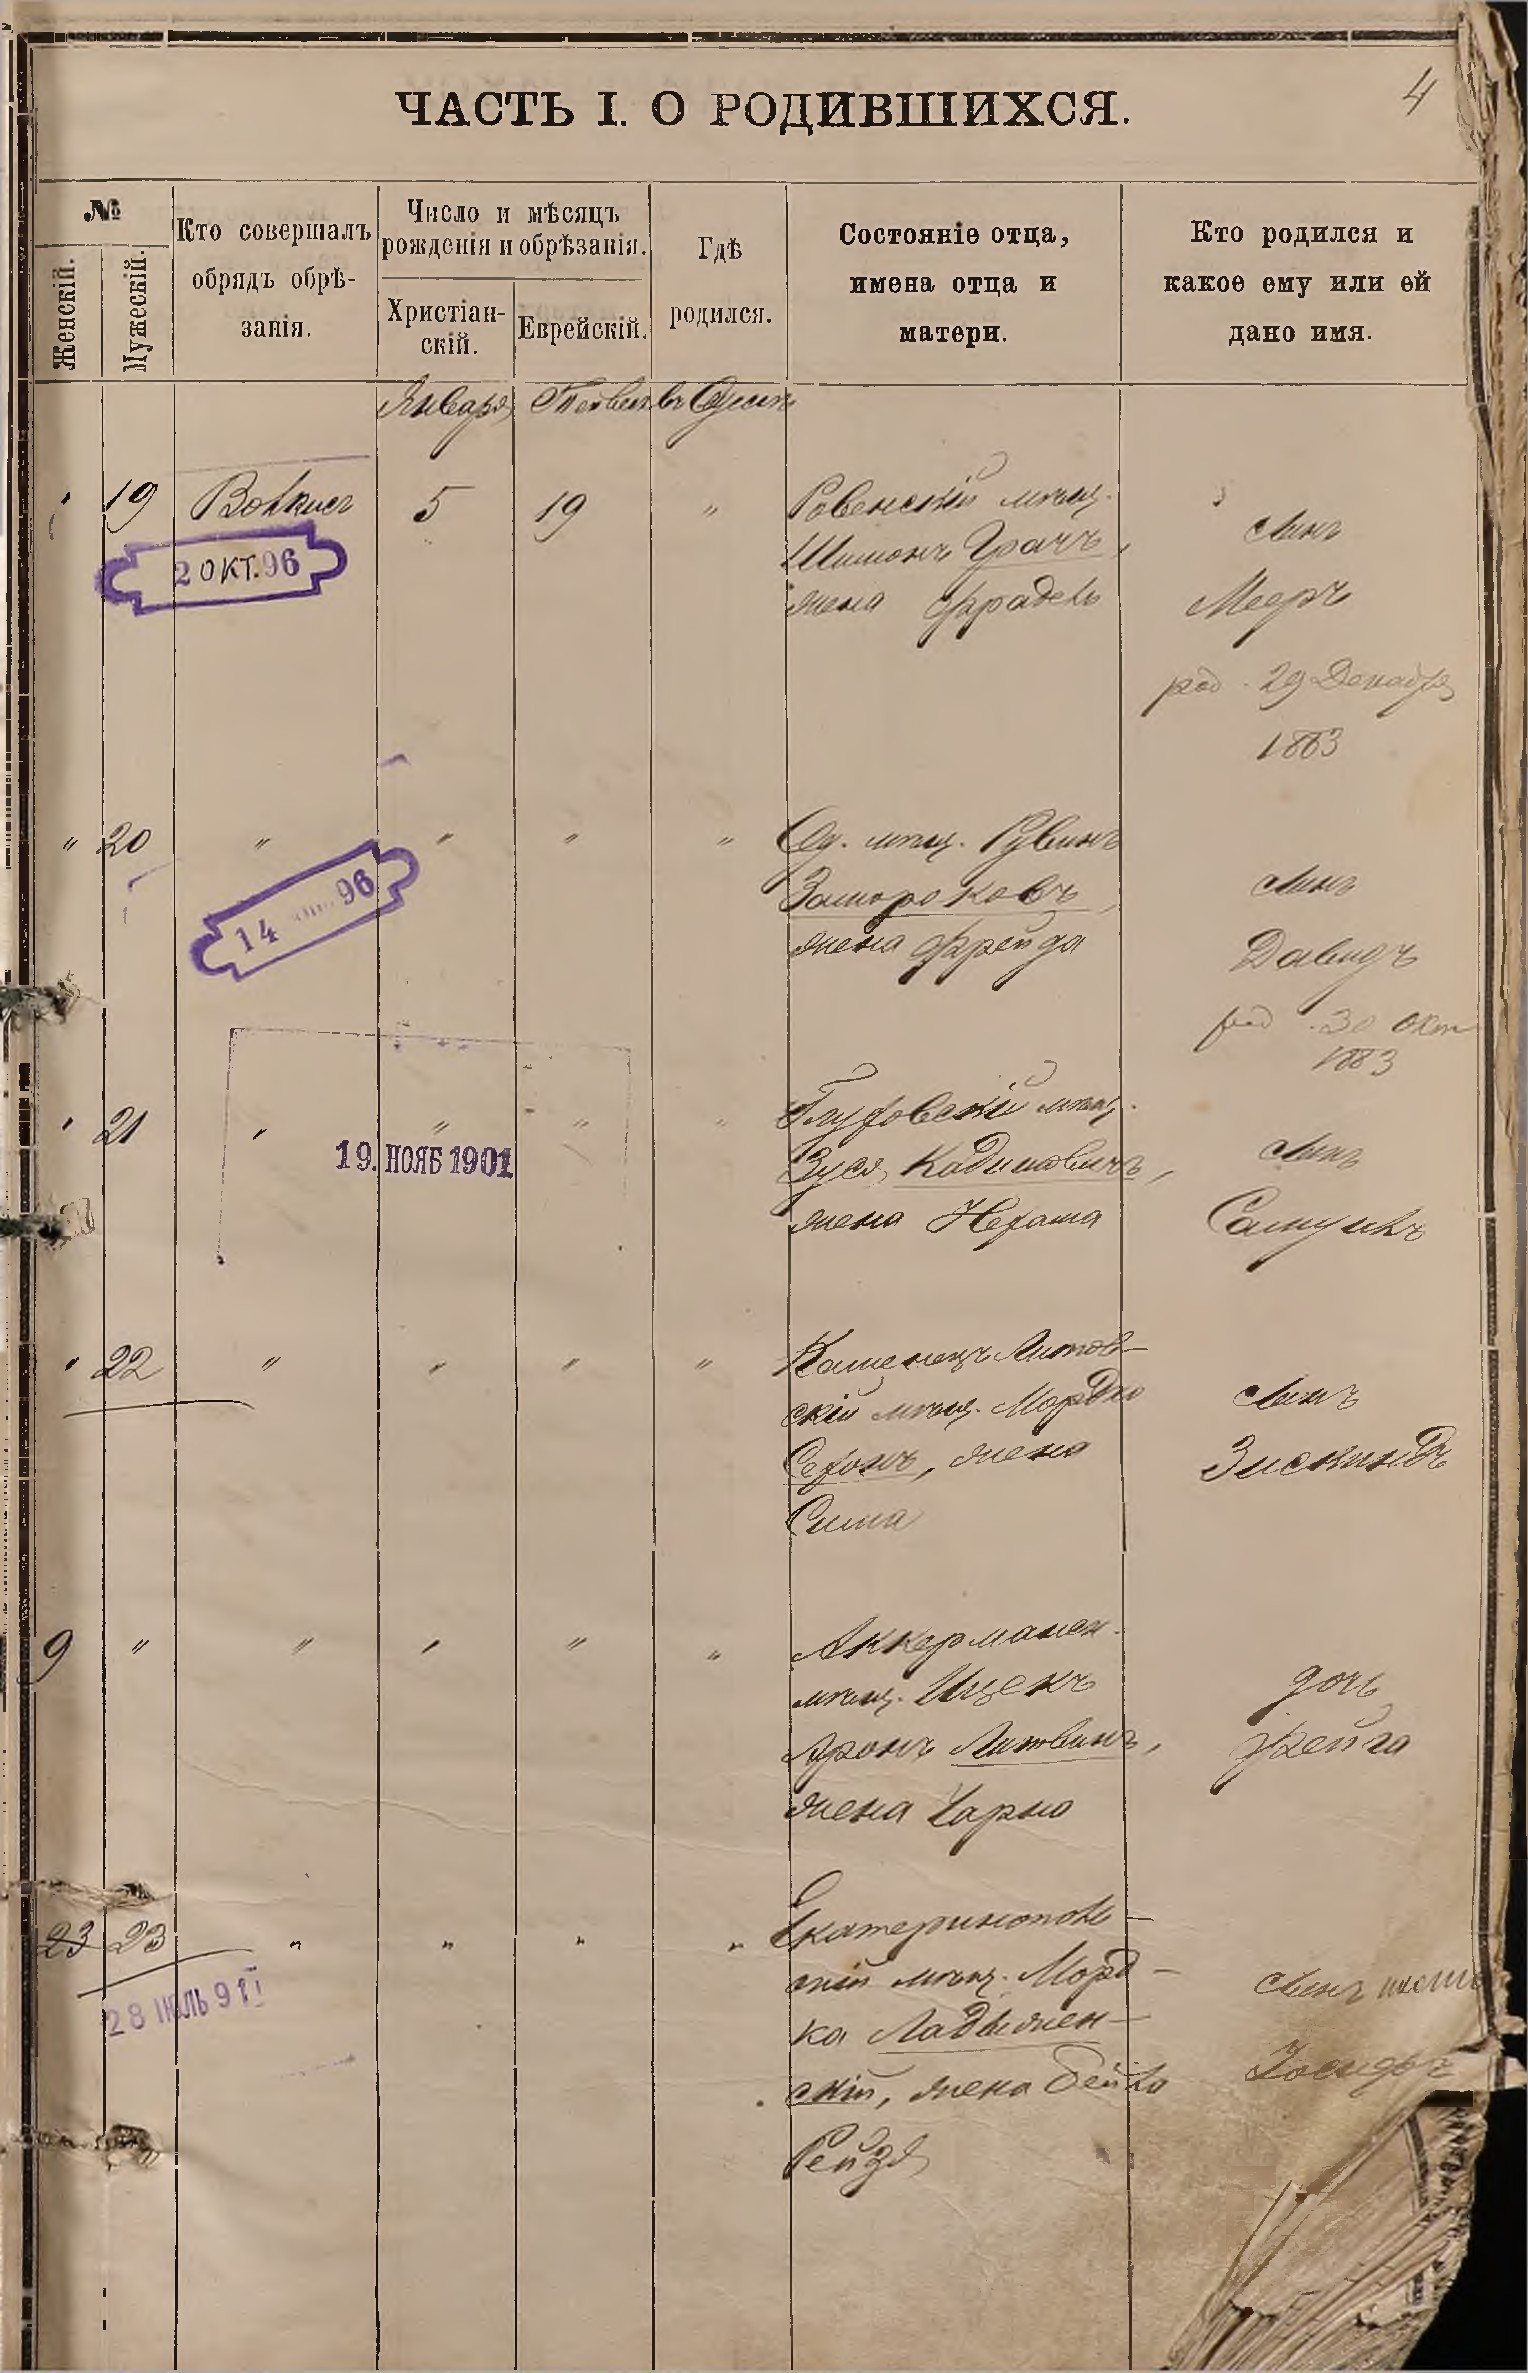 4
ЧАСТЬ I. О РОДИВШИХСЯ.
№
Женскій.
Мужескій.
Кто совершалъ
обрядъ обрѣ-
занія.
Число и мѣсяцъ
рожденія и обрѣзанія.
Христіан-
скій.
Еврейскій.
Гдѣ
родился.
Состояніе отца,
имена отца и
матери.
Кто родился и
какое ему или ей
дано имя.
Января Тейвеса въ Одессѣ
19 5 19 "
2 ОКТ. 96
Ровенскій мѣщ.
Шимонъ Грачъ,
жена Фрадель
сынъ
Мееръ
род. 29 Декабря
1883
" 20 " " " "
14 96
Од. мѣщ. Рувинъ
жена Фрейда
сынъ
Давидъ
род. 30 Окт
1883
" 21 " " " "
19. НОЯБ 1901
Глуховскій мѣщ.
Зуся Кадиновичъ,
жена Нехама
сынъ
Самуилъ
" 22 " " " "
Каменецъ Литов-
скій мѣщ. Мордко
жена
Сима
сынъ
Зискиндъ
9 " " " " "
Аккерманск.
мѣщ. Ицекъ
Аронъ Литвинъ,
жена Чарна
дочь
Фейга
23 23 " " " "
28 ІЮЛЬ 911
Екатеринополь-
скій мѣщ. Морд-
ка Ладыжен-
скій, жена Бейла
Рейзя
сынъ
Іосифъ